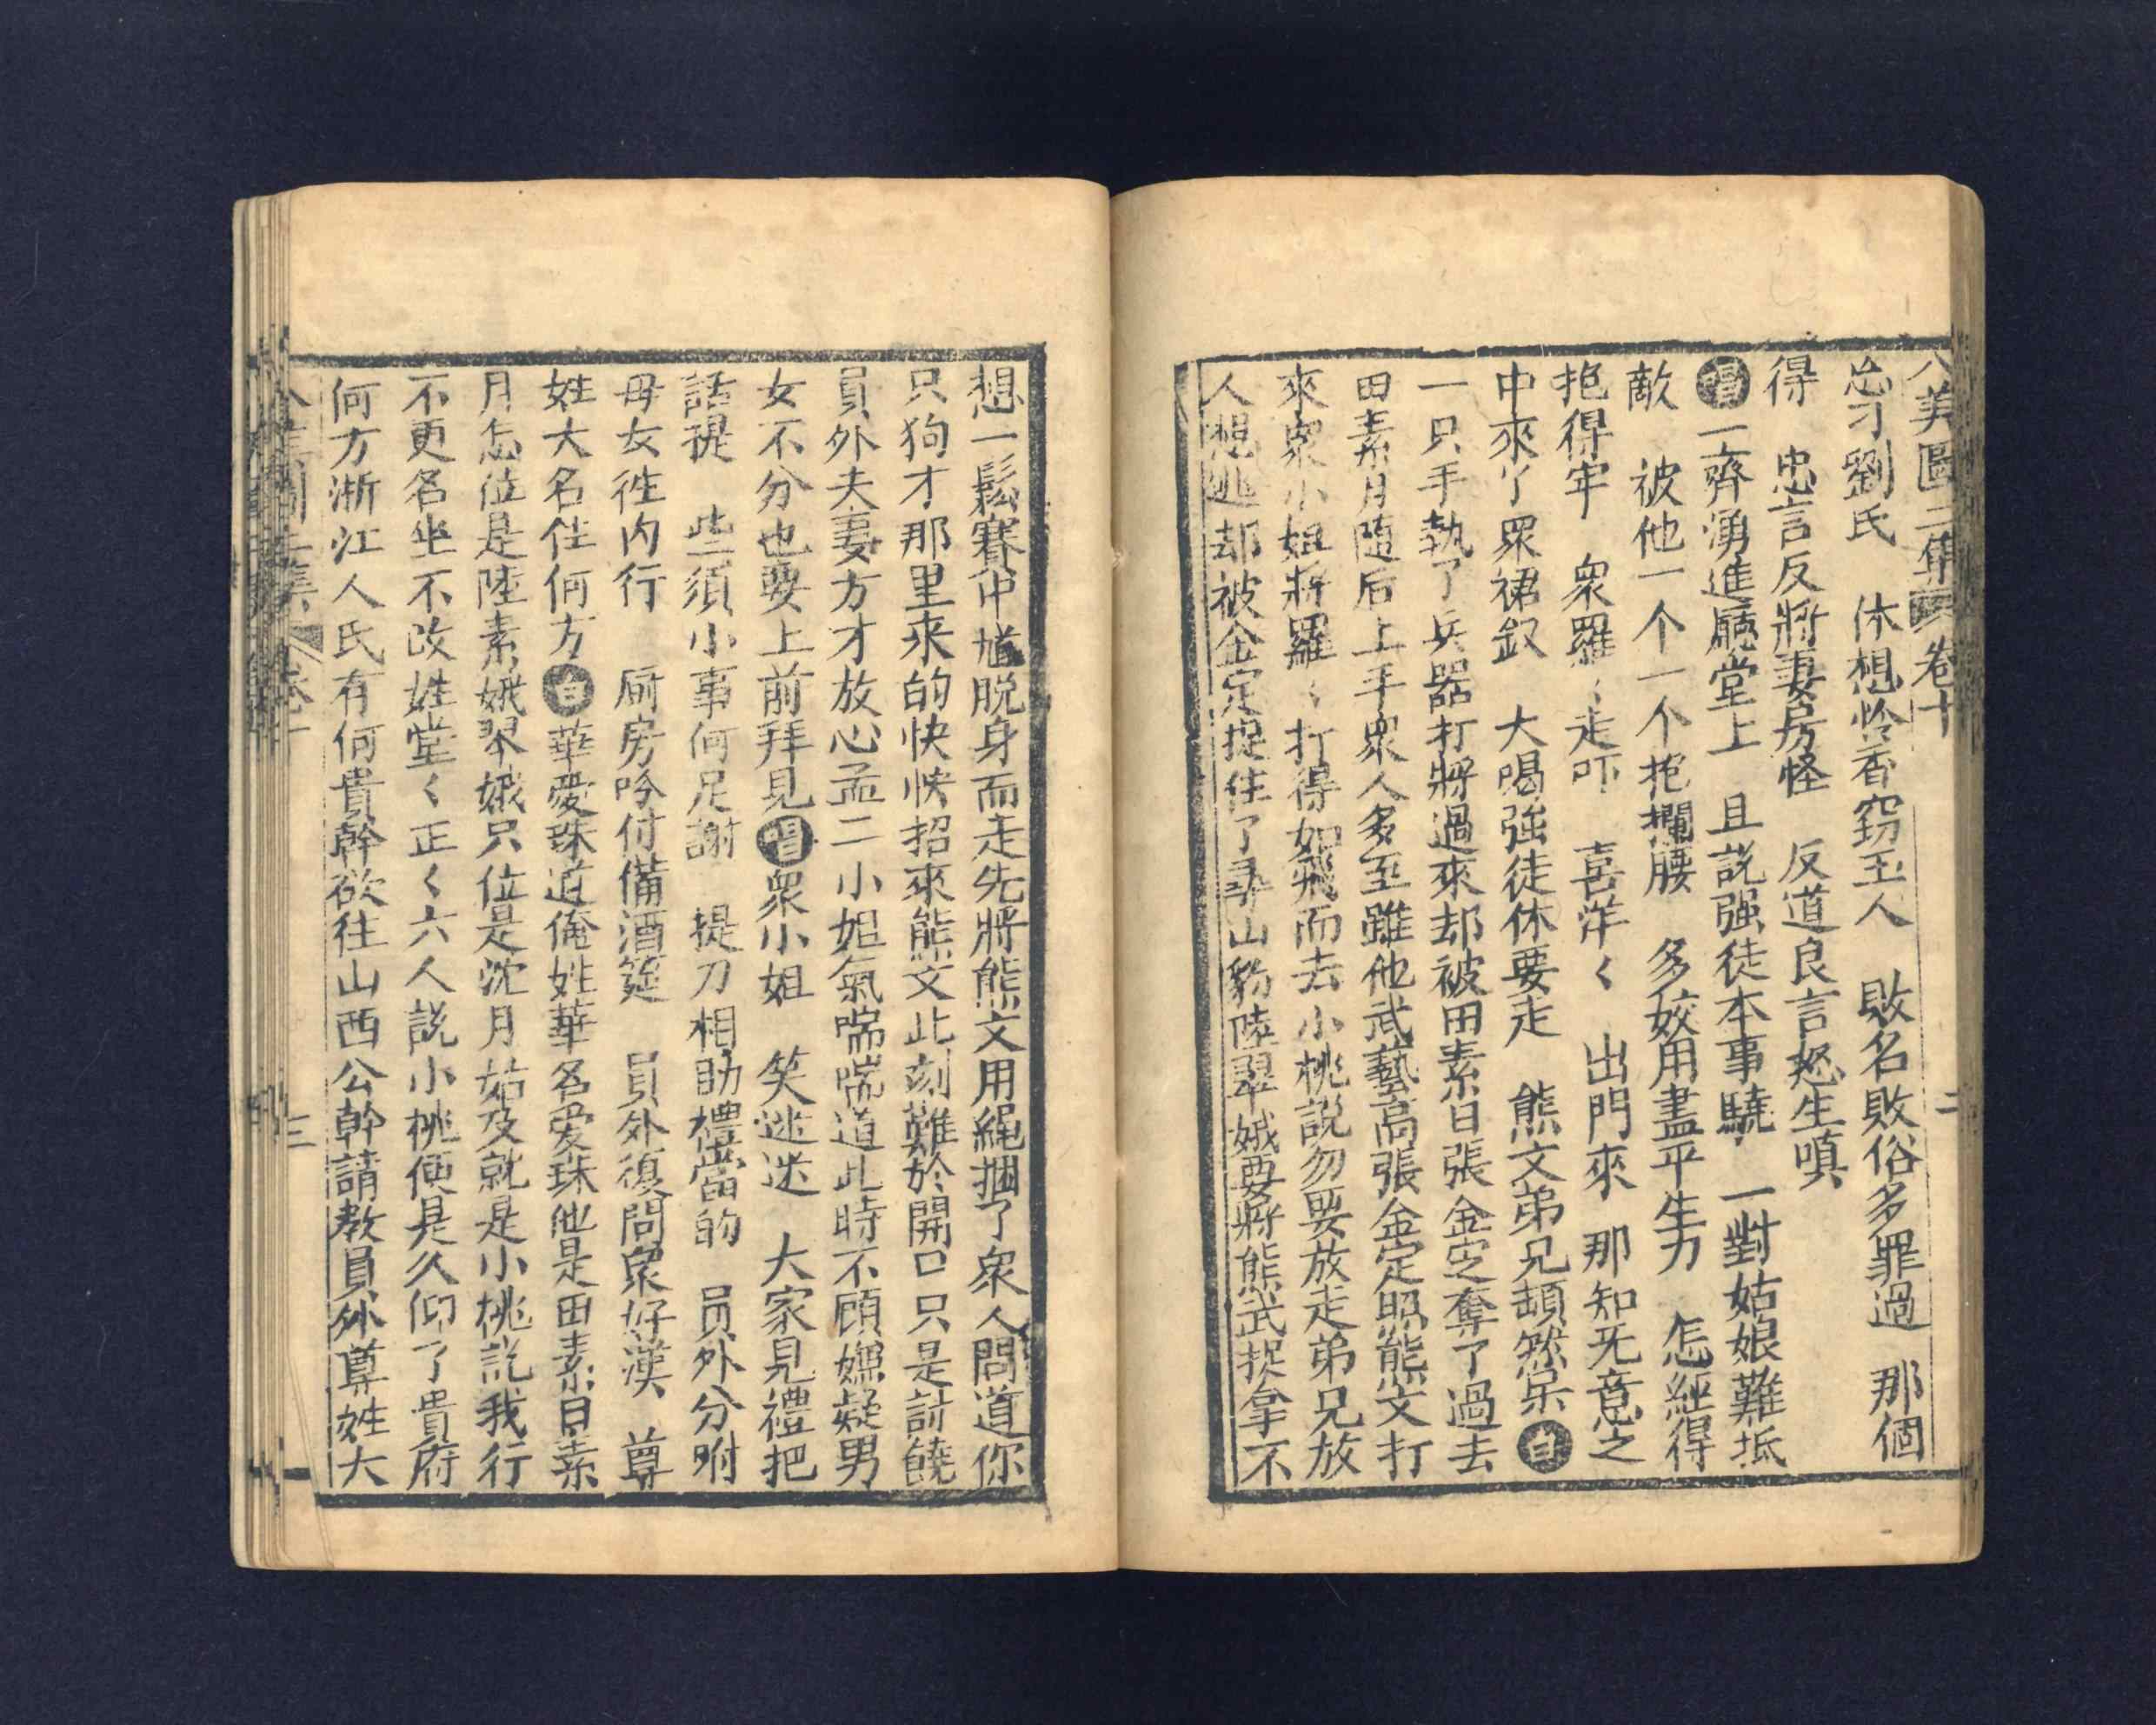 八美圖二集 卷十 二
忿才劉氏 休想怜香窃玉人 敗名敗俗多罪過 那個
得 忠言反將妻房怪 反道良言怒生嗔
唱一齊湧進廳堂上 且説强徒本事驍 一對姑娘難抵
敵 被他一个一个抱攔腰 多姣用盡平生力 怎經得
抱得牢 衆羅〻走吓 喜洋〻 出門來 那知旡意之
中來了眾裙釵 大喝強徒休要走 熊文弟兄頓然呆白
一只手執了兵器打將過來却被田素日張金定奪了過去
田素月随后上手衆人多至雖他武藝高張金定照熊文打
來衆小姐將羅〻打得如飛而去小桃説勿要放走弟兄放
人想逃却被金定捉住了尋山豹陸翠娥要將熊武捉拿不
想一鬆賽仲馗脱身而走先將熊文用繩捆了衆人問道你
只狗才那里来的快快招來熊文此刻難於開口只是討饒
員外夫妻方才放心孟二小姐氣喘喘道此時不顧嫌疑男
女不分也要上前拜見唱衆小姐 笑迷迷 大家見禮把
話提 些須小事何足謝 提刀相助禮當的 員外分咐
母女徃内行 厨房吟付備酒筵 員外復問衆好漢 尊
姓大名住何方白華愛珠道俺姓華名愛珠他是田素日素
月怎位是陸素娥翠娥只位是沈月姑及就是小桃説我行
不更名坐不改姓堂〻正〻六人説小桃便是久仰了貴府
何方浙江人氏有何貴幹欲往山西公幹請教員外尊姓大
三